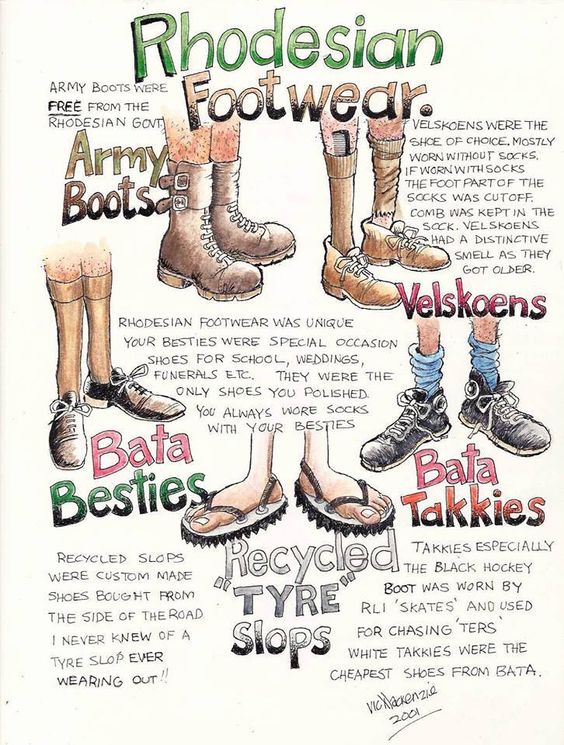 Rhodesian
Footwear.
ARMY BOOTS WERE
FREE FROM THE
RHODESIAN GOVT.
Army
Boots
VELSKOENS WERE THE
SHOE OF CHOICE, MOSTLY
WORN WITHOUT SOCKS.
IF WORN WITH SOCKS
THE FOOT PART OF THE
SOCKS WAS CUT OFF.
COMB WAS KEPT IN THE
SOCK. VELSKOENS
HAD A DISTINCTIVE
SMELL AS THEY
GOT OLDER.
Velskoens
RHODESIAN FOOTWEAR WAS UNIQUE
YOUR BESTIES WERE SPECIAL OCCASION
SHOES FOR SCHOOL, WEDDINGS,
FUNERALS ETC. THEY WERE THE
ONLY SHOES YOU POLISHED.
YOU ALWAYS WORE SOCKS
WITH YOUR BESTIES
Bata
Besties
Bata
Takkies
Recycled
"TYRE"
Slops
RECYCLED SLOPS
WERE CUSTOM MADE
SHOES BOUGHT FROM
THE SIDE OF THE ROAD
I NEVER KNEW OF A
TYRE SLOP EVER
WEARING OUT!!
TAKKIES ESPECIALLY
THE BLACK HOCKEY
BOOT WAS WORN BY
RLI 'SKATES' AND USED
FOR CHASING 'TERS'
WHITE TAKKIES WERE THE
CHEAPEST SHOES FROM BATA.
Vic Mackenzie
2001